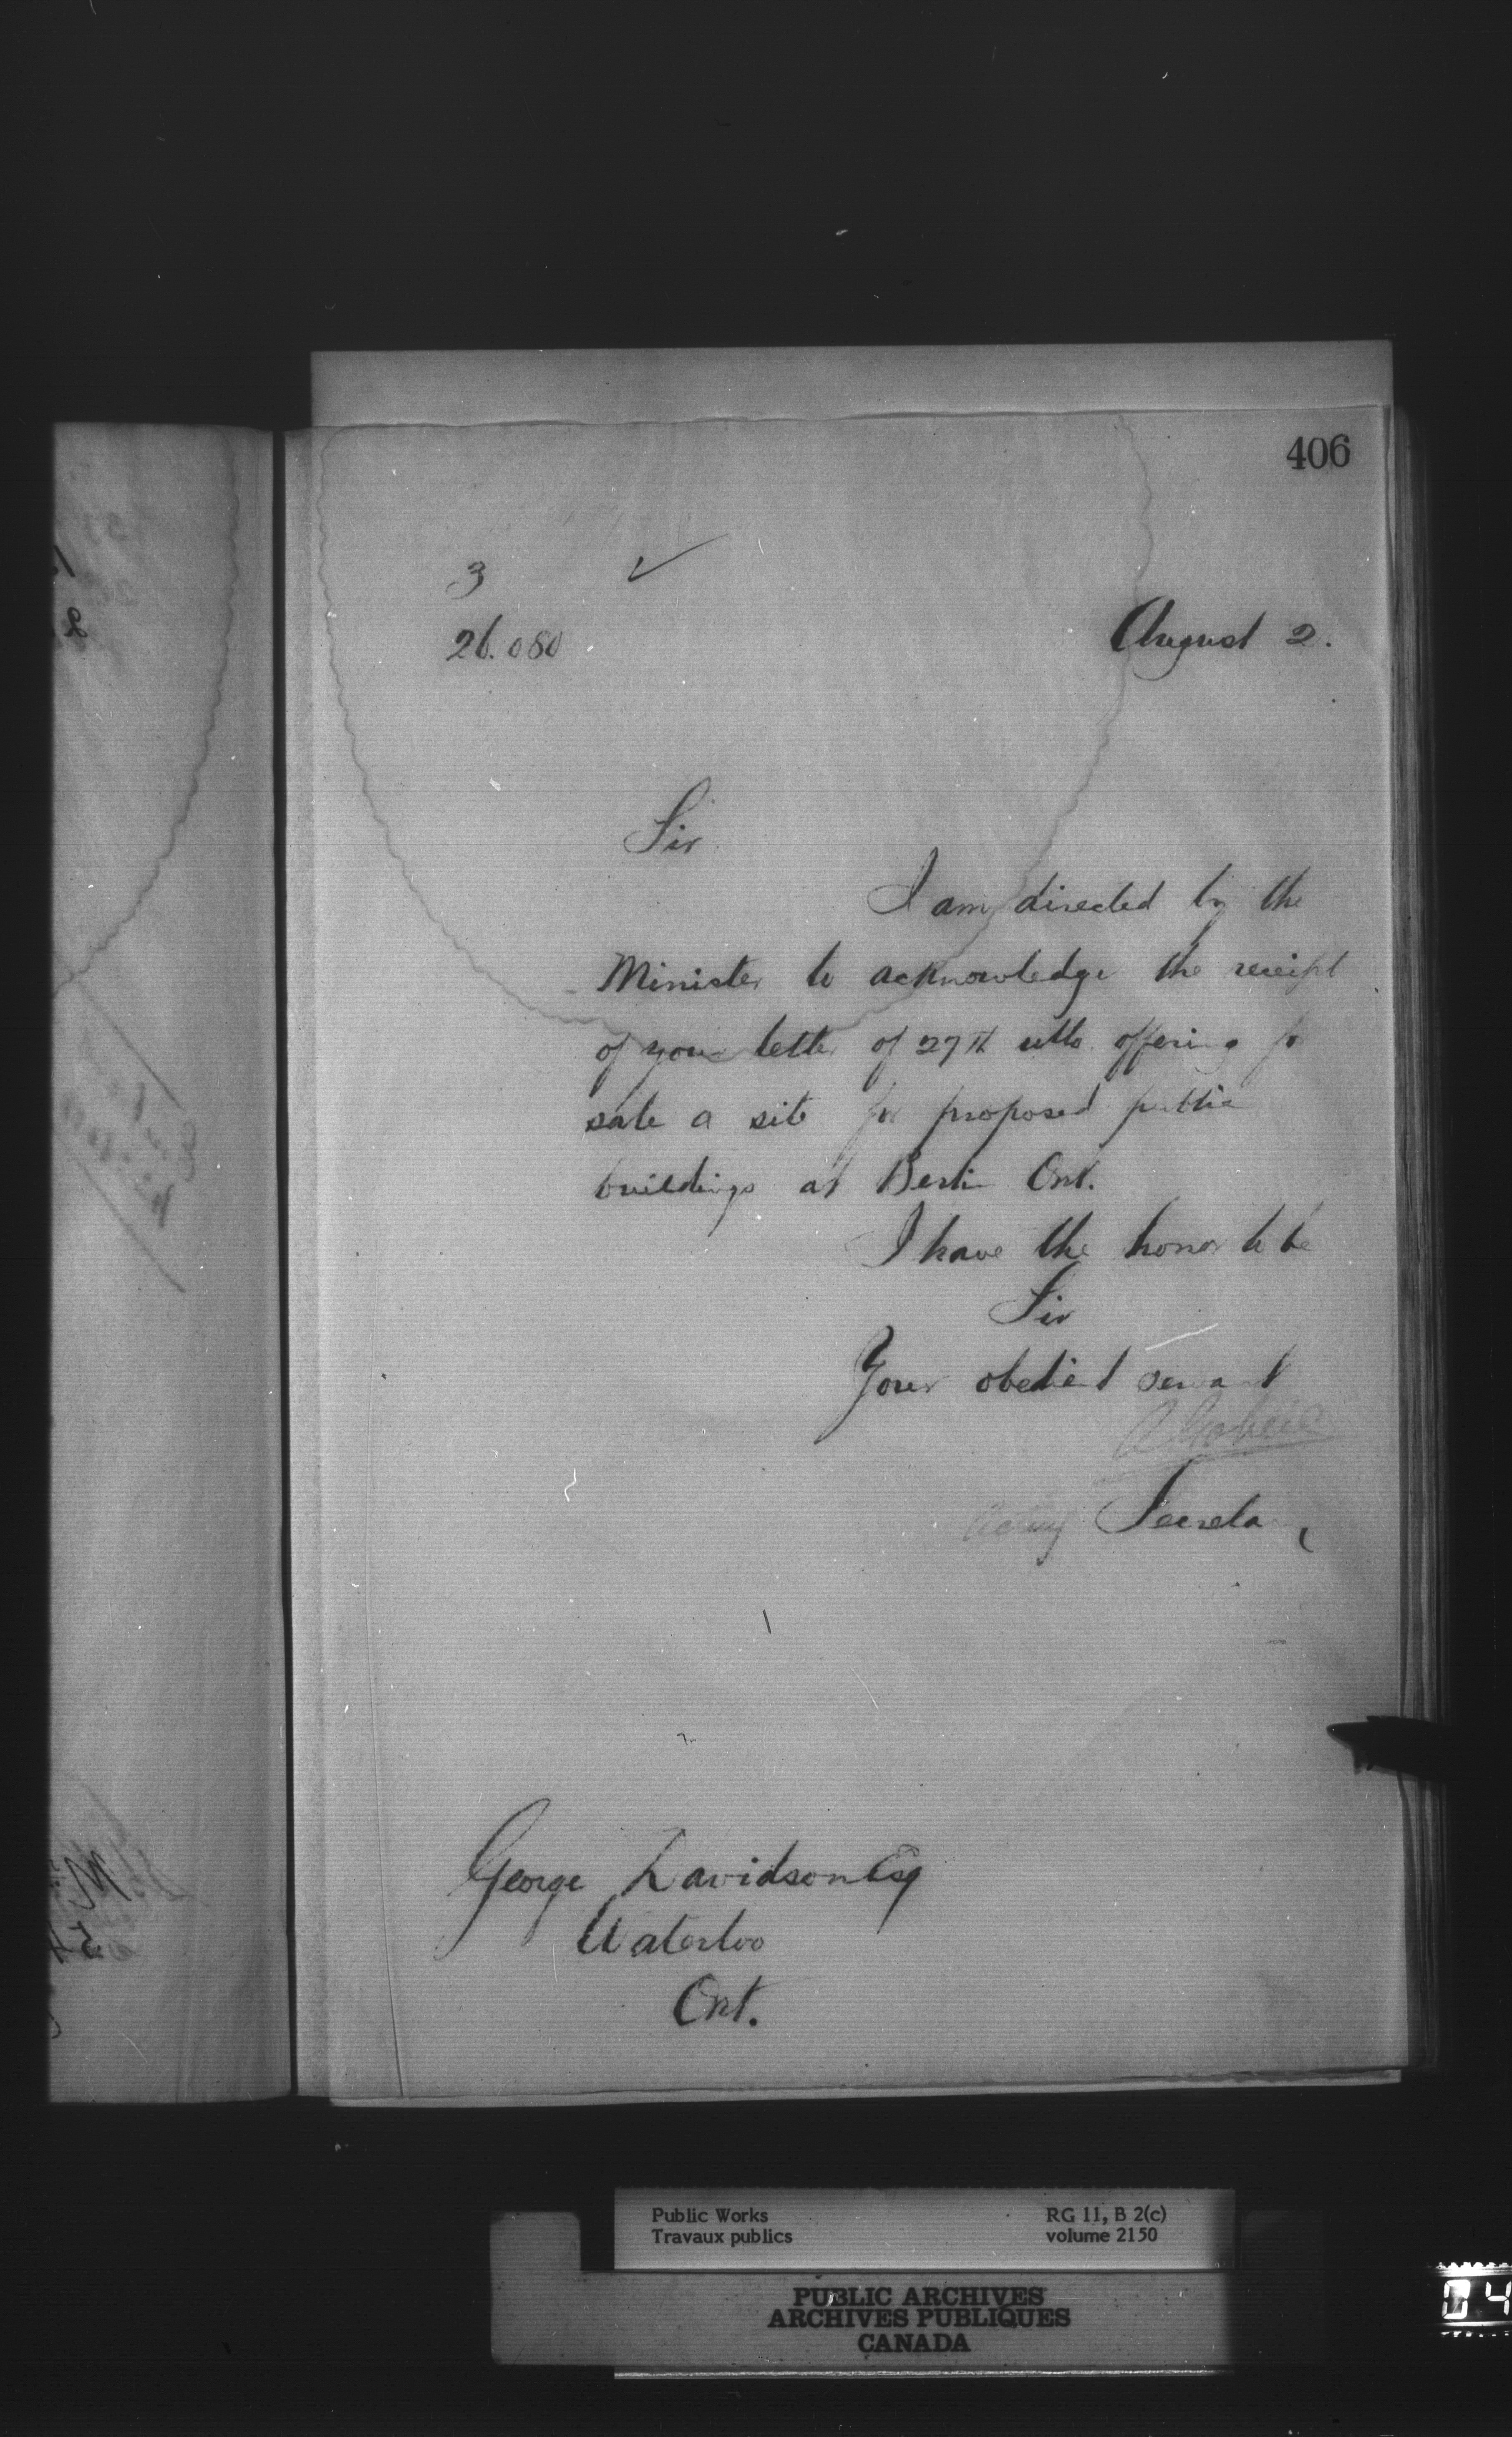 406
3 ✓
26.080
August 2.
Sir
I am directed by the
Minister to acknowledge the receipt
of your letter of 27th ulto. offering for
sale a site for proposed public
buildings at Berlin Ont.
I have the honor to be
Sir
Your obedient servant
A Gobeil
Acting Secretary
George Davidson Esq
Waterloo
Ont.
Public Works
Travaux publics
RG 11, B 2(c)
volume 2150
PUBLIC ARCHIVES
ARCHIVES PUBLIQUES
CANADA
04